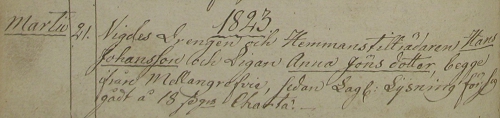 1823
Martii 21. Vigdes Drengen och Hemmanstilträdaren Hans
Johansson och Pigan Anna Jöns dotter, begge
ifrån Mellangrefvie, sedan Lagl: Lysning försig
gådt å 18 Chartæ.